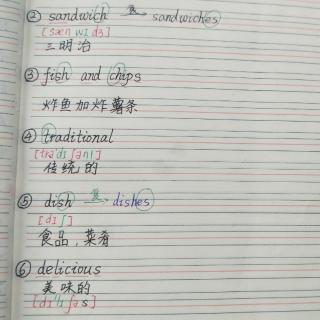 ② sandwich 复→ sandwiches
[sæn wɪ dʒ]
三明治
③ fish and chips
炸鱼加炸薯条
④ traditional
[trə'dɪ ʃənl]
传统的
⑤ dish 复→ dishes
[dɪʃ]
食品，菜肴
⑥ delicious
美味的
[dɪ'lɪʃəs]